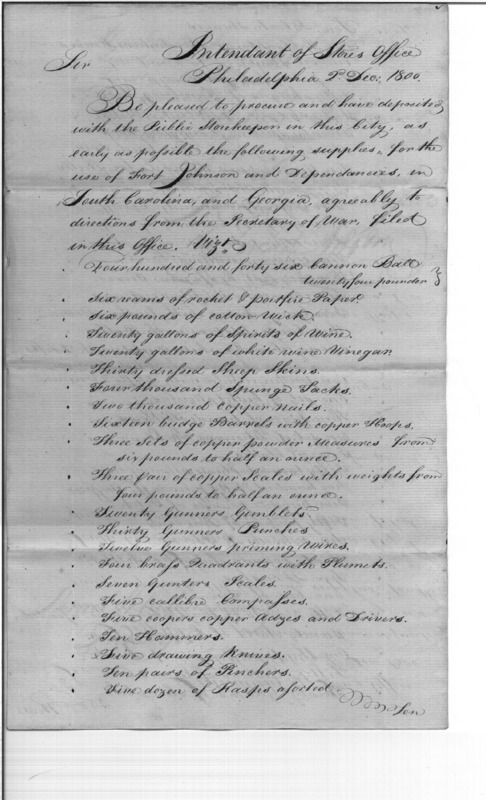 Intendant of Stores Office
Sir
Philadelphia 2d Dec. 1800.
Be pleased to procure and have deposited
with the Public Storekeeper in this City, as
early as possible the following supplies, for the
use of Fort Johnson and Dependancies, in
South Carolina, and Georgia, agreeably to
directions from the Secretary of War, filed
in this Office. Vizt.
Four hundred and forty six Cannon Ball
twenty four pounder
Six reams of rocket & portfire Paper.
Six pounds of cotton Wick.
Seventy gallons of Spirits of Wine.
Seventy gallons of white wine Vinegar.
Thirty dressed Sheep Skins.
Four thousand Spunge Tacks.
Two thousand Copper Nails.
Sixteen budge Barrels with copper Hoops.
Three Sets of copper powder Measures from
six pounds to half an ounce.
Three pair of copper Scales with weights from
four pounds to half an ounce.
Seventy Gunners Gemblets.
Thirty Gunners Punches
Twelve Gunners priming Wires.
Four brass Quadrants with Plumets.
Seven Gunters Scales.
Five callibre Compasses.
Five coopers copper Adzes and Drivers.
Ten Hammers.
Five drawing Knives.
Ten pairs of Pinchers.
Five dozen of Rasps asorted
Ten